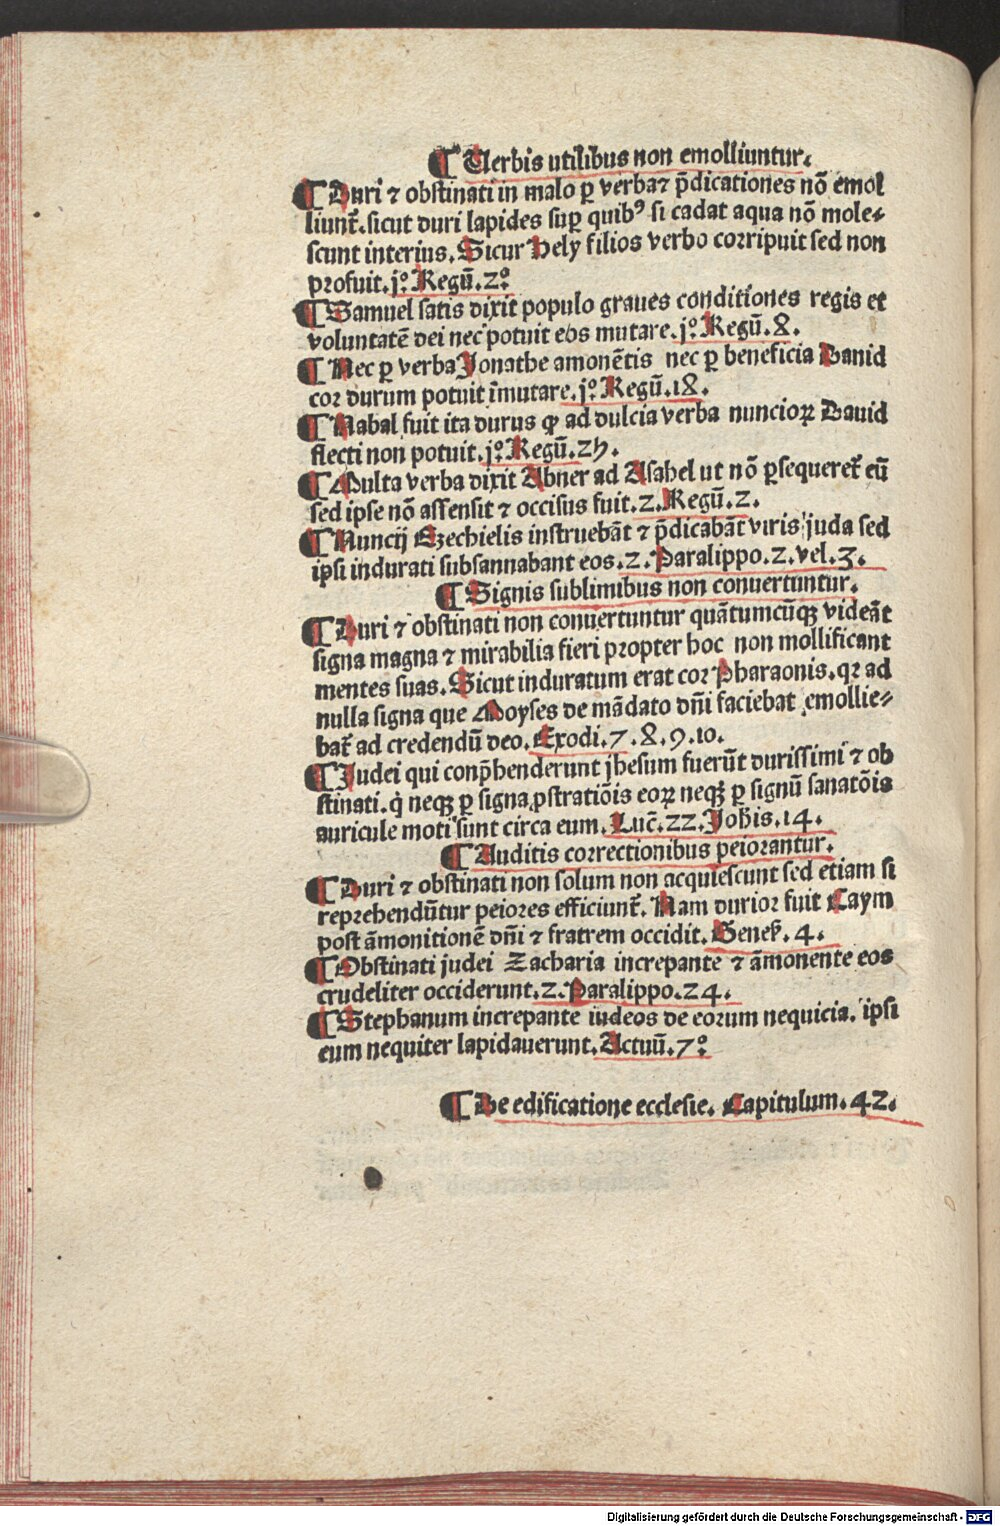 ¶ Uerbis utilibus non emolliuntur.
¶ Duri ⁊ obstinati in malo ꝑ verba⁊ p̄dicationes nō emol
liunt̄. sicut duri lapides suꝑ quibꝰ si cadat aqua nō mole⸗
scunt interius. Sicur Hely filios verbo corripuit sed non
profuit. jº. Regū. 2º
¶ Samuel satis dixit populo graues conditiones regis et
voluntatē dei nec potuit eos mutare. jº. Regū. 8.
¶ Nec ꝑ verba Jonathe amonētis nec ꝑ beneficia Dauid
cor durum potuit īmutare. jº. Regū. 18.
¶ Nabal fuit ita durus ꝙ ad dulcia verba nuncioꝝ Dauid
flecti non potuit. jº. Regū. 25.
¶ Multa verba dixit Abner ad Asahel ut nō ꝑsequeret̄ eū
sed ipse nō assensit ⁊ occisus fuit. 2. Regū. 2.
¶ Nuncij Ezechielis instruebāt ⁊ p̄dicabāt viris juda sed
ipsi indurati subsannabant eos. 2. Paralippo. 2. vel. 3.
¶ Signis sublimibus non conuertuntur.
¶ Duri ⁊ obstinati non conuertuntur quātumcūqꝫ videāt
signa magna ⁊ mirabilia fieri propter hoc non mollificant
mentes suas. Sicut induratum erat cor Pharaonis. qꝛ ad
nulla signa que Moyses de mādato dn̄i faciebat emollie⸗
bat̄ ad credendū deo. Exodi. 7. 8. 9. 10.
¶ Judei qui conp̄henderunt jhesum fuerūt durissimi ⁊ ob
stinati. q̇ neqꝫ ꝑ signa ꝓstratiōis eoꝝ neqꝫ ꝑ signū sanatōis
auricule moti sunt circa eum. Luc̄. 22. Joh̄is. 14.
¶ Auditis correctionibus peiorantur.
¶ Duri ⁊ obstinati non solum non acquiescunt sed etiam si
reprehendūtur peiores efficiunt̄. Nam durior fuit Caym
post āmonitionē dn̄i ⁊ fratrem occidit. Genes̄. 4.
¶ Obstinati judei Zacharia increpante ⁊ āmonente eos
crudeliter occiderunt. 2. Paralippo. 24.
¶ Stephanum increpante iudeos de eorum nequicia. ipsi
eum nequiter lapidauerunt. Actuū. 7º
¶ De edificatione ecclesie. Capitulum. 42.
Digitalisierung gefördert durch die Deutsche Forschungsgemeinschaft - DFG